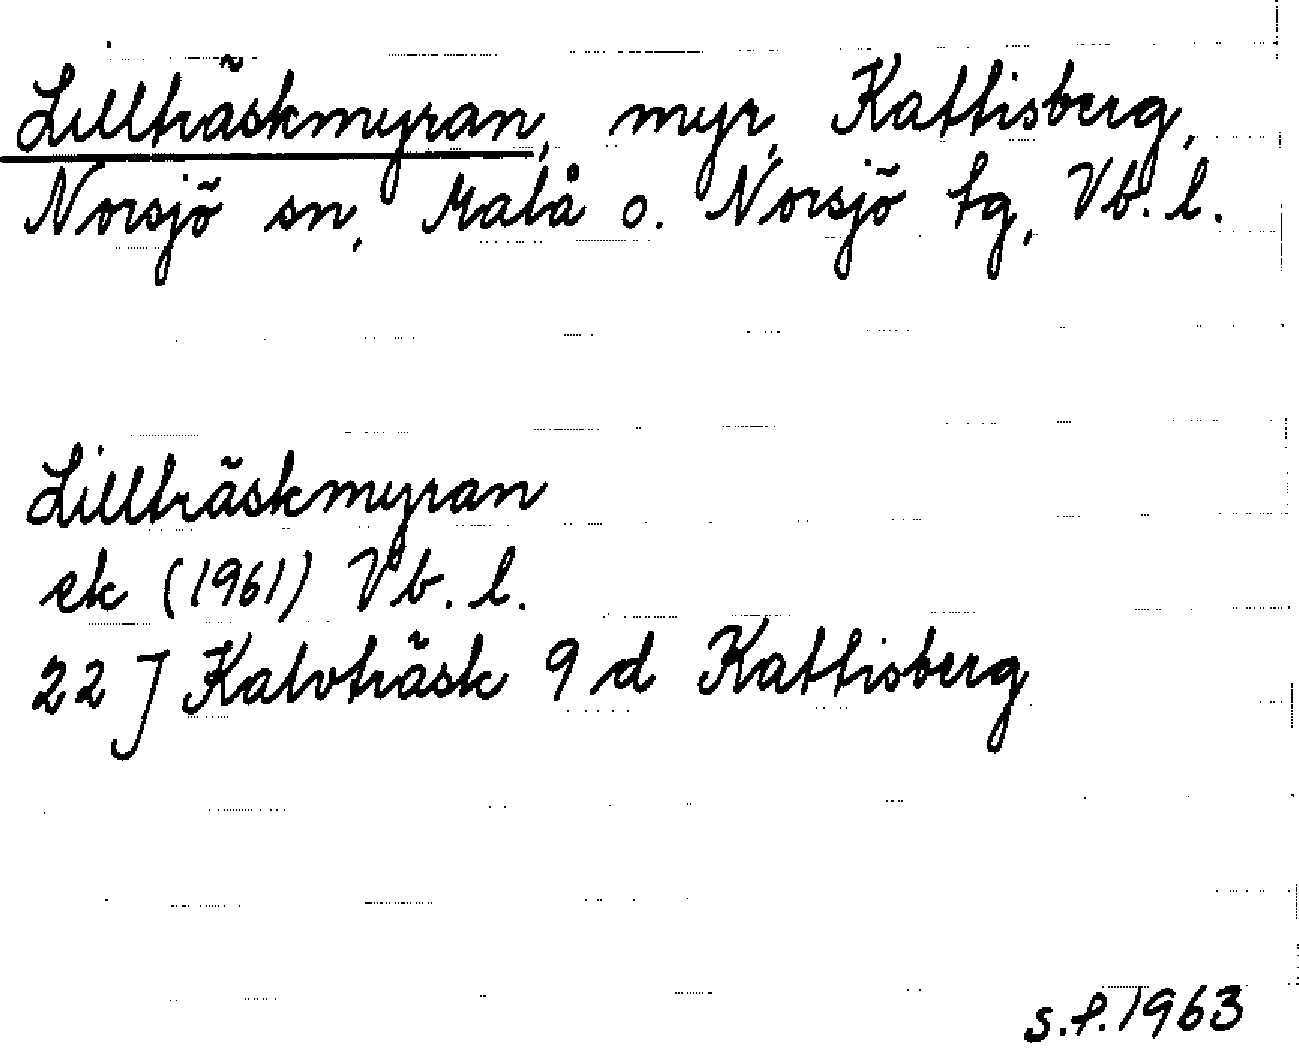 Lillträskmyran, myr, Kattisberg,
Norsjö sn, Malå o. Norsjö tg, Vb. l.
Lillträskmyran
ek (1961) Vb. l.
22 J Kalvträsk 9 d Kattisberg
s.f. 1963